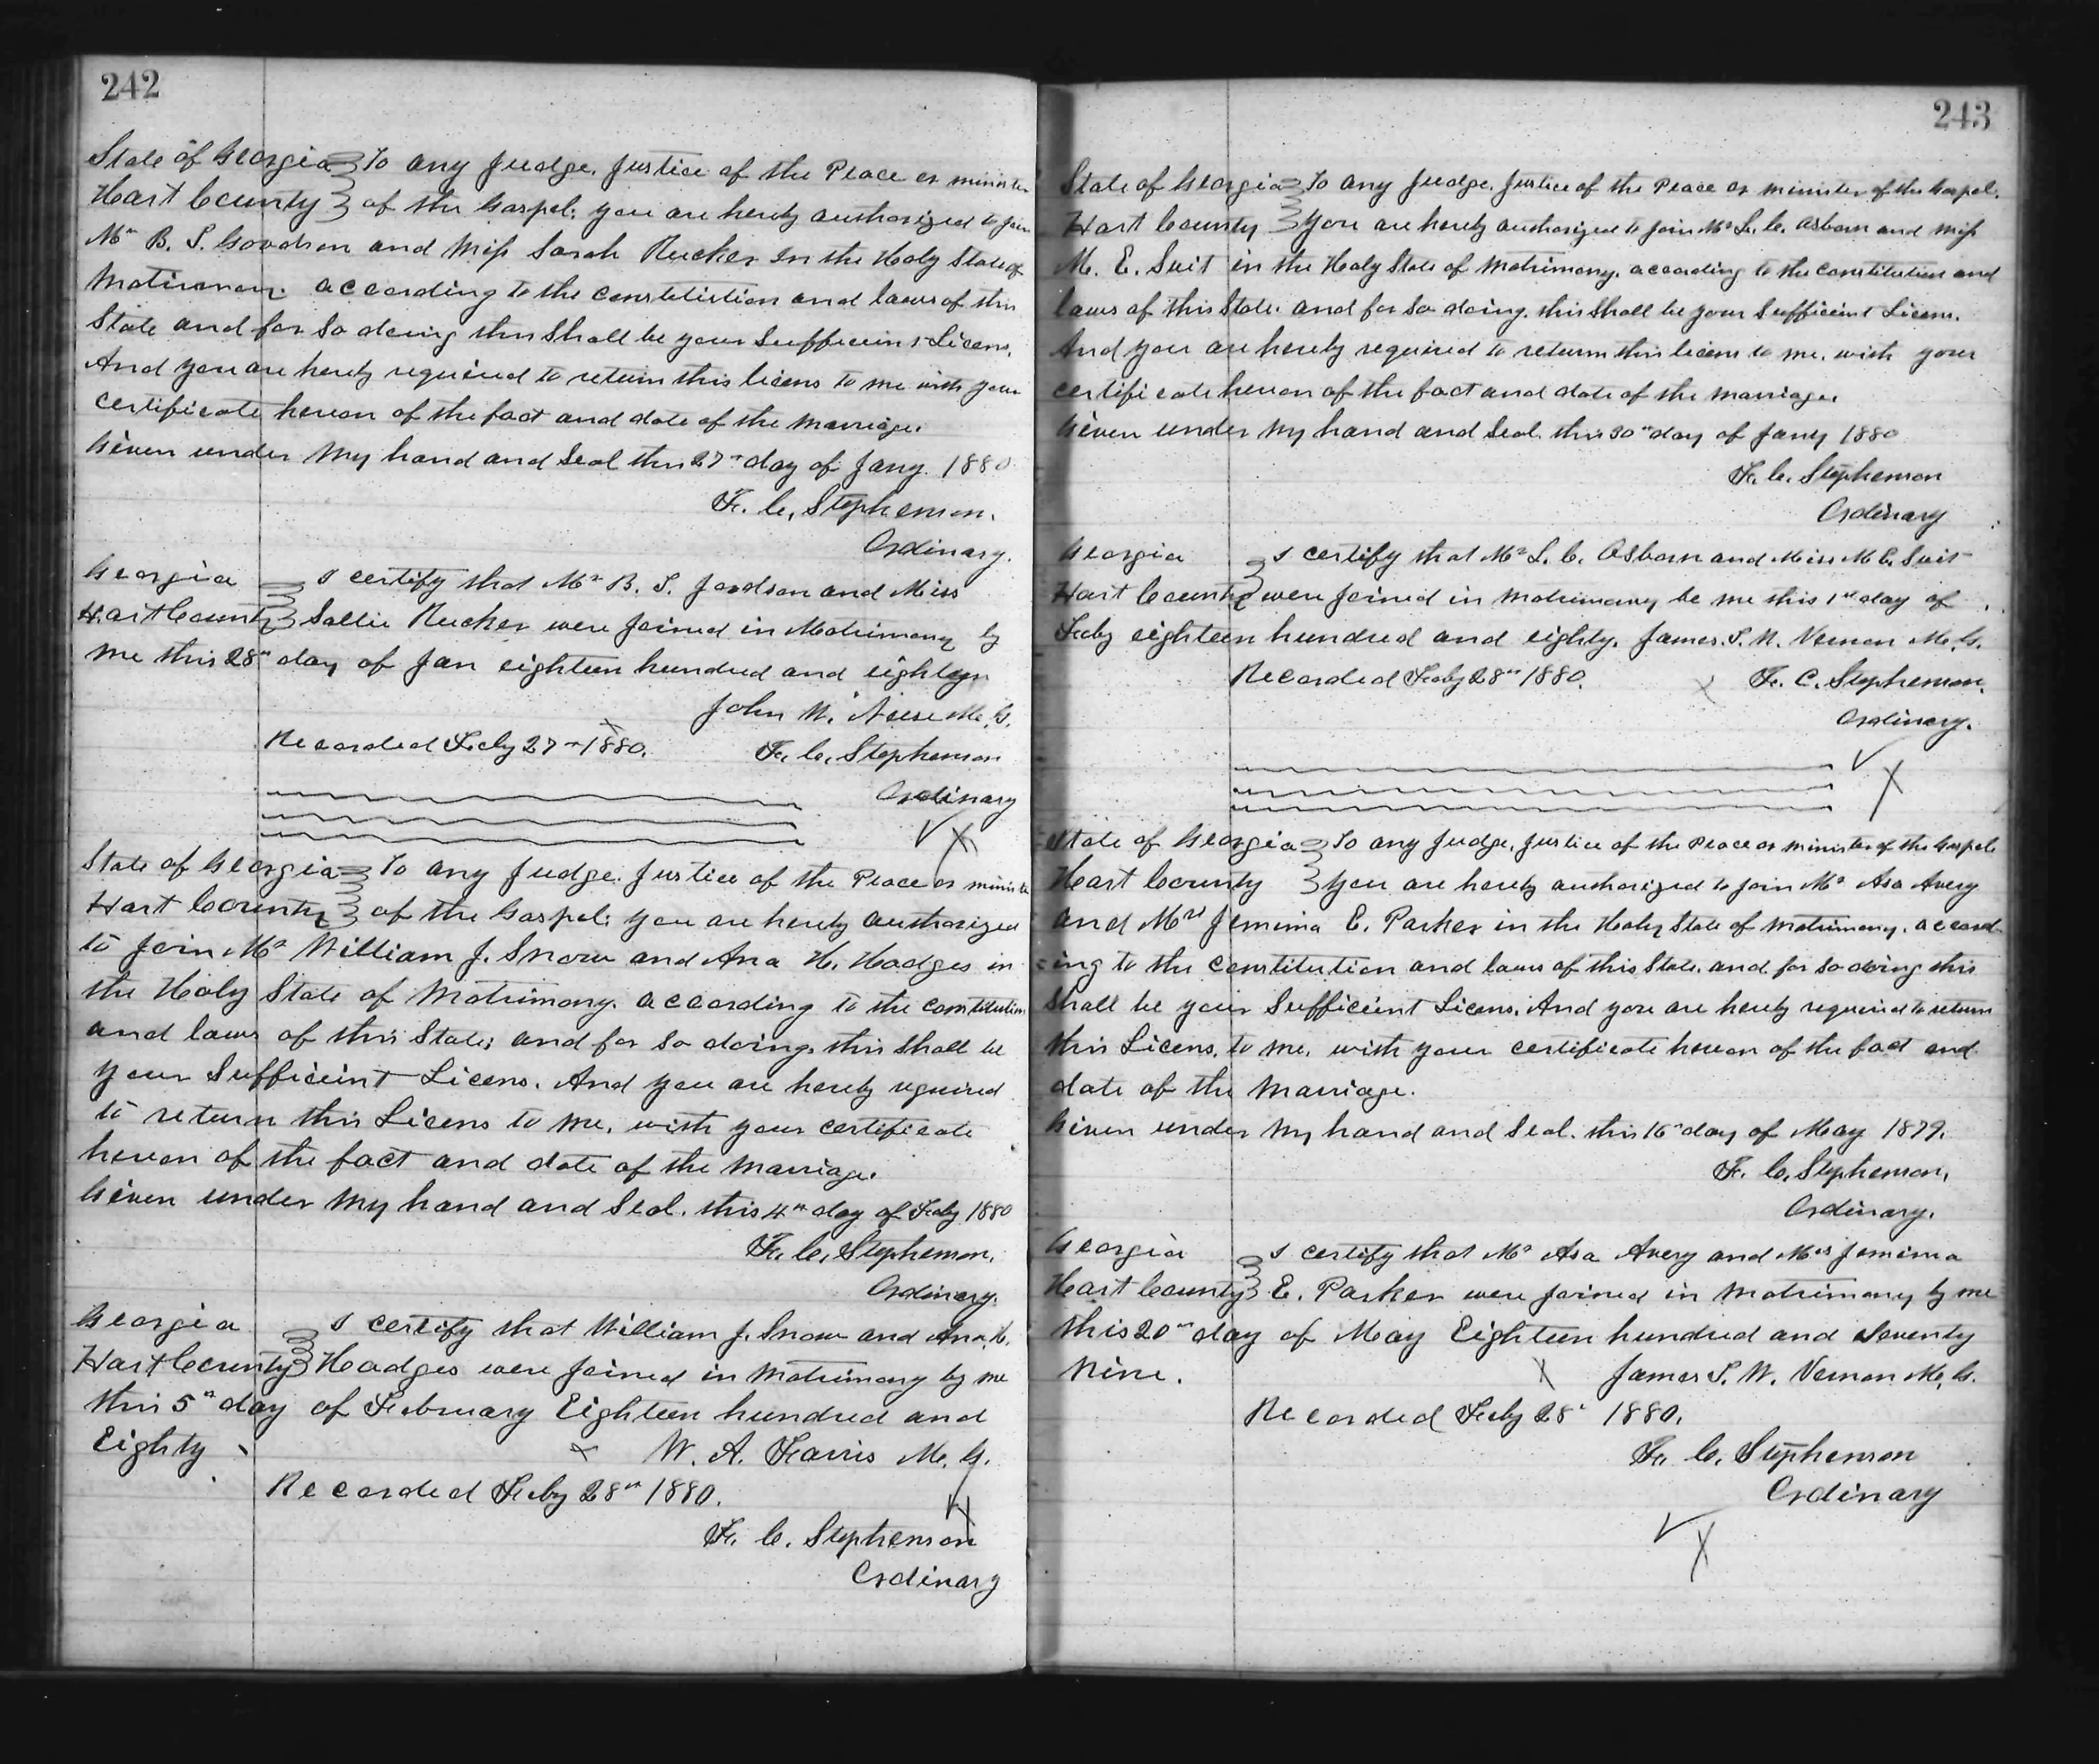 242
State of Georgia To any Judge. Justice of the Peace or minister
Hart County of the Gospel: you are hereby authorized to join
Mr B. S. Goodson and Miss Sarah Rucker in the Holy State of
Matrimony. according to the constitution and laws of this
State and for so doing this shall be your Sufficient Licens.
And you are hereby required to return this licens to me with your
certificate hereon of the fact and date of the marriage.
Given under my hand and Seal this 27th day of Jany. 1880
F. C. Stephenson.
Ordinary.
Georgia I certify that Mr B. S. Goodson and Miss
Hart County Sallie Rucker were joined in Matrimony by
me this 28th day of Jan eighteen hundred and eighty
John M. M. G.
Recorded Feby 27th 1880. F. C. Stephenson
Ordinary
State of Georgia To any Judge. Justice of the Peace or minister
Hart County of the Gospel: you are hereby authorized
to join Mr William J. Snow and Ana H. Hodges in
the Holy State of Matrimony. according to the constitution
and laws of this State; and for so doing. this shall be
your Sufficient Licens. And you are hereby required
to return this Licens to me, with your certificate
hereon of the fact and date of the marriage.
Given under my hand and Seal. this 4th day of Feby 1880
F. C. Stephenson.
Ordinary.
Georgia I certify that William J. Snow and Ana. H.
Hart County Hodges were joined in Matrimony by me
this 5th day of February Eighteen hundred and
Eighty W. A. Farris M. G.
Recorded Feby 28th 1880.
F. C. Stephenson
Ordinary
243
State of Georgia To any Judge. Justice of the Peace or minister of the Gospel.
Hart County you are hereby authorized to join Mr L. C. Osborn and Miss
M. E. Suit in the Holy State of Matrimony. according to the constitution and
laws of this State. and for so doing. this shall be your Sufficient Licens.
And you are hereby required to return this licens to me. with your
certificate hereon of the fact and date of the marriage.
Given under my hand and Seal. this 30th day of Jany 1880
F. C. Stephenson
Ordinary
Georgia I certify that Mr L. C. Osborn and Miss M E. Suit
Hart County were joined in matrimony be me this 1st day of
Feby eighteen hundred and eighty. James. S. W. Vernon M. G.
Recorded Feby 28th 1880. F. C. Stephenson.
Ordinary.
State of Georgia To any Judge. Justice of the Peace or minister of the Gospel.
Hart County you are hereby authorized to join Mr Asa Avery
and Mrs Jemima E. Parker in the Holy State of Matrimony. accord-
=ing to the constitution and laws of this State. and for so doing this
shall be your Sufficient Licens. And you are hereby required to return
this Licens. to me. with your certificate hereon of the fact and
date of the marriage.
Given under my hand and Seal. this 16th day of May 1879.
F. C. Stephenson.
Ordinary.
Georgia I certify that Mr Asa Avery and Mrs Jemima
Hart County E. Parker were joined in Matrimony by me
this 20th day of May Eighteen hundred and Seventy
Nine. James S. W. Vernon M. G.
Recorded Feby 28th 1880.
F. C. Stephenson
Ordinary